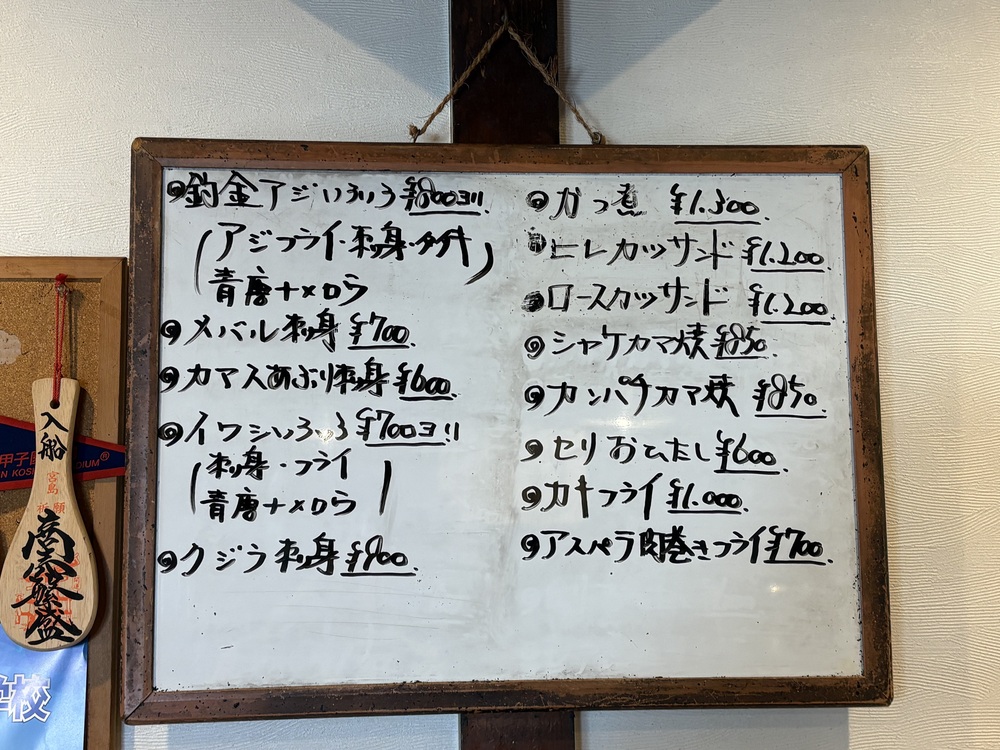 釣金アジいろいろ ¥800ヨリ
(アジフライ・刺身・タタキ)
青唐+メロう
メバル刺身 ¥700.
カマスあぶり刺身 ¥600.
イワシいろいろ ¥700ヨリ
(刺身・フライ
青唐+メロう)
クジラ刺身 ¥900.
カつ煮 ¥1.300.
ヒレカッサンド ¥1.200.
ロースカッサンド ¥1.200.
シャケカマ焼 ¥850.
カンパチカマ焼 ¥850.
セリおひたし ¥600.
カキフライ ¥1.000.
アスパラ肉巻きフライ ¥700.
入船
宮島
祈願
商売繁盛
甲子園
校